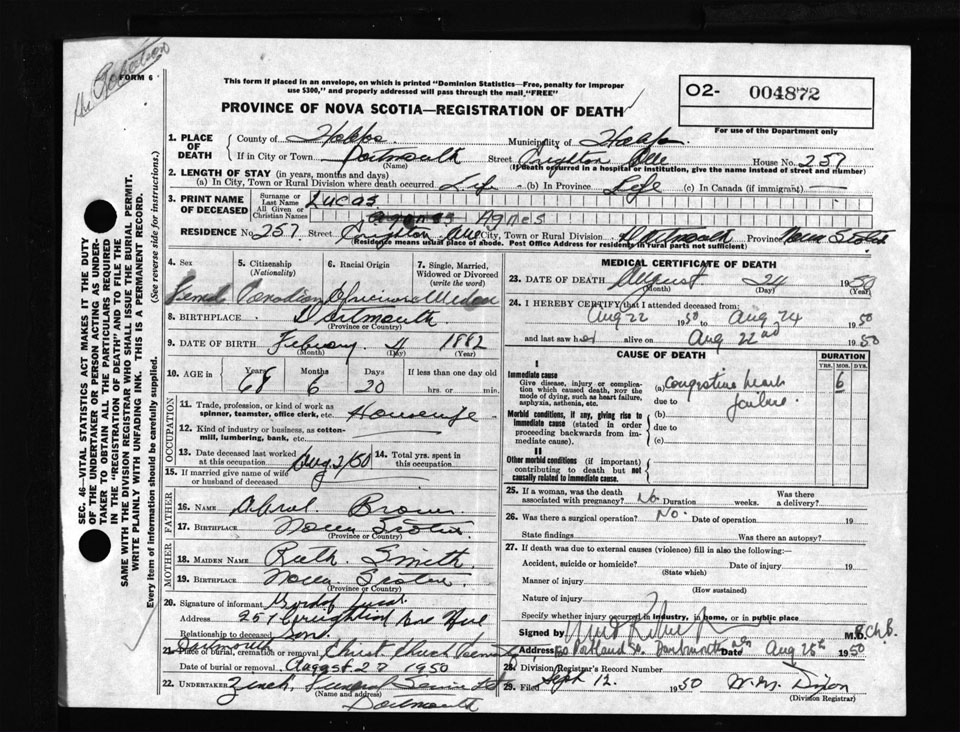 FORM 6
This form if placed in an envelope, on which is printed "Dominion Statistics—Free, penalty for improper
use $300," and properly addressed will pass through the mail "FREE"
PROVINCE OF NOVA SCOTIA—REGISTRATION OF DEATH
O2- 004872
For use of the Department only
SEC. 46—VITAL STATISTICS ACT MAKES IT THE DUTY
OF THE UNDERTAKER OR PERSON ACTING AS UNDER-
TAKER TO OBTAIN ALL THE PARTICULARS REQUIRED
IN THE "REGISTRATION OF DEATH" AND TO FILE THE
SAME WITH THE DIVISION REGISTRAR WHO SHALL ISSUE THE BURIAL PERMIT.
WRITE PLAINLY WITH UNFADING INK. THIS IS A PERMANENT RECORD.
Every item of information should be carefully supplied. (See reverse side for instructions.)
1. PLACE OF DEATH County of Municipality of
If in City or Town Dartmouth (Name) Street Crighton Ave House No. 257
(If death occurred in a hospital or institution, give the name instead of street and number)
2. LENGTH OF STAY (in years, months and days)
(a) In City, Town or Rural Division where death occurred Life - (b) In Province Life (c) In Canada (if immigrant) —
3. PRINT NAME OF DECEASED
Surname or Last Name Lucas
All Given or Christian Names Agnes Agnes
RESIDENCE No. 257 Street Crighton Ave City, Town or Rural Division Dartmouth Province Nova Scotia
(Residence means usual place of abode. Post Office Address for residents in rural parts not sufficient)
4. Sex 5. Citizenship (Nationality) 6. Racial Origin 7. Single, Married, Widowed or Divorced (write the word)
Canadian African Widow
8. BIRTHPLACE Dartmouth
(Province or Country)
9. DATE OF BIRTH February 4 1882
(Month) (Day) (Year)
10. AGE in Years Months Days If less than one day old
68 6 20 hrs. or min.
OCCUPATION
11. Trade, profession, or kind of work as spinner, teamster, office clerk, etc. Housewife
12. Kind of industry or business, as cotton-mill, lumbering, bank, etc.
13. Date deceased last worked at this occupation Aug 2/50 14. Total yrs. spent in this occupation
15. If married give name of wife or husband of deceased
FATHER
16. NAME Brown
17. BIRTHPLACE Nova Scotia
(Province or Country)
MOTHER
18. MAIDEN NAME Ruth Smith
19. BIRTHPLACE Nova Scotia
(Province or Country)
20. Signature of informant
Address 257 Creighton Ave
Relationship to deceased Son
21. Place of burial, cremation or removal Dartmouth Christ Church Cemetery
Date of burial or removal August 27 1950
22. UNDERTAKER Funeral Service Ltd
(Name and address)
Dartmouth
MEDICAL CERTIFICATE OF DEATH
23. DATE OF DEATH August 24 1950
(Month) (Day) (Year)
24. I HEREBY CERTIFY that I attended deceased from:
Aug 22 1950 to Aug 24 1950
and last saw her alive on Aug 22nd 1950
CAUSE OF DEATH DURATION
YRS. MOS. DYS.
I
Immediate cause
Give disease, injury or complication which caused death, not the mode of dying, such as heart failure, asphyxia, asthenia, etc.
(a) Congestive heart 6
due to failure
Morbid conditions, if any, giving rise to immediate cause (stated in order proceeding backwards from immediate cause).
(b)
due to
(c)
II
Other morbid conditions (if important) contributing to death but not causally related to immediate cause.
25. If a woman, was the death associated with pregnancy? No Duration weeks. Was there a delivery?
26. Was there a surgical operation? No. Date of operation 19
State findings Was there an autopsy?
27. If death was due to external causes (violence) fill in also the following:—
Accident, suicide or homicide? Date of injury 19
(State which)
Manner of injury
(How sustained)
Nature of injury
Specify whether injury occurred in industry, in home, or in public place
Signed by M.D. B.Ch.B.
Address Portland St. Dartmouth Date Aug 25th 1950
28. Division Registrar's Record Number
29. Filed Sept 12. 1950 W. M. Dixon
(Division Registrar)